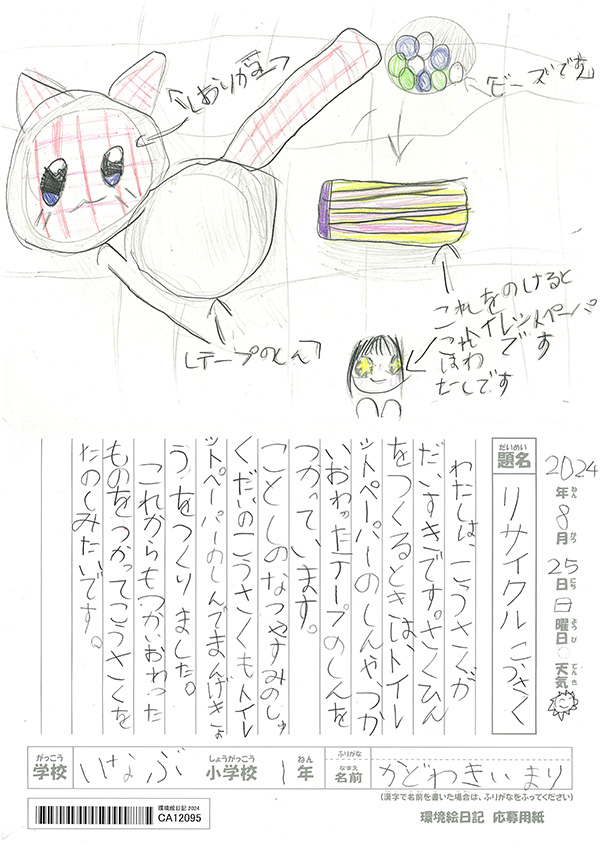 「おりがみ」
「ビーズです」
「テープのしん」
これをのけると
トイレットペーパ
です
これ
はわ
たしです
2024年ねん8月がつ25日にち日曜日ようび天気てんき
題名だいめい
リサイクルこうさく
わたしは、こうさくが
だいすきです。さくひん
をつくるときは、トイレ
ットペーパーのしんや、つか
いおわったテープのしんを
つかっています。
ことしのなつやすみのしゅ
くだいのこうさくもトイレ
ットペーパーのしんでまんげきょ
うをつくりました。
これからもつかいおわった
ものをつかってこうさくを
たのしみたいです。
学校がっこう いなぶ 小学校しょうがっこう 1年ねん
ふりがな
名前なまえ かどわきいまり
(漢字で名前を書いた場合は、ふりがなをふってください)
環境絵日記2024
CA12095
環境絵日記 応募用紙